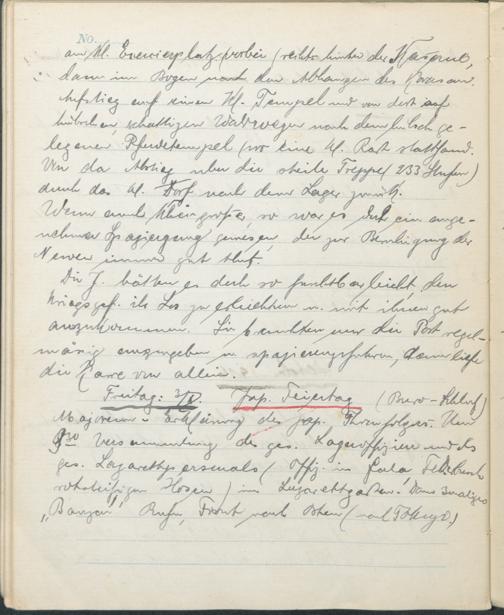 No.
am kl. Exerzierplatz vorbei (rechts hinter der Kaserne,
dann im Bogen nach den Abhängen des
Aufstieg auf einen kl. Tempel und von dort auf
hübschen, schattigen Waldwegen nach dem hübsch ge-
legenen Pferdetempel, wo eine kl. Rast stattfand.
Von da Abstieg über die steile Treppe (233 Stufen)
durch das kl. Dorf nach dem Lager zurück.
Wenn auch kein großer, so war es doch ein ange-
nehmer Spaziergang gewesen, der zur Beruhigung der
Nerven immer gut thut.
Die J. hätten es doch so furchtbar leicht, den
Kriegsgef. ihr Los zu erleichtern u. mit ihnen gut
auszukommen. Sie brauchten nur die Post regel-
mäßig auszugeben u. spazierenzuführen, dann liefe
die Karre von allein.
Freitag: 3/ Jap. Feiertag (Buro-Schluß)
Majorenn-Erklärung des jap. Thronfolgers. Um
9 30 Versammlung des ges. Lageroffiziere und des
ges. Lazarettpersonals (Offiz. in Gala,
Hosen) im Lazarettgarten. 3maliges
"Banzai" Rufen, Front nach Osten (nach Tokyo)